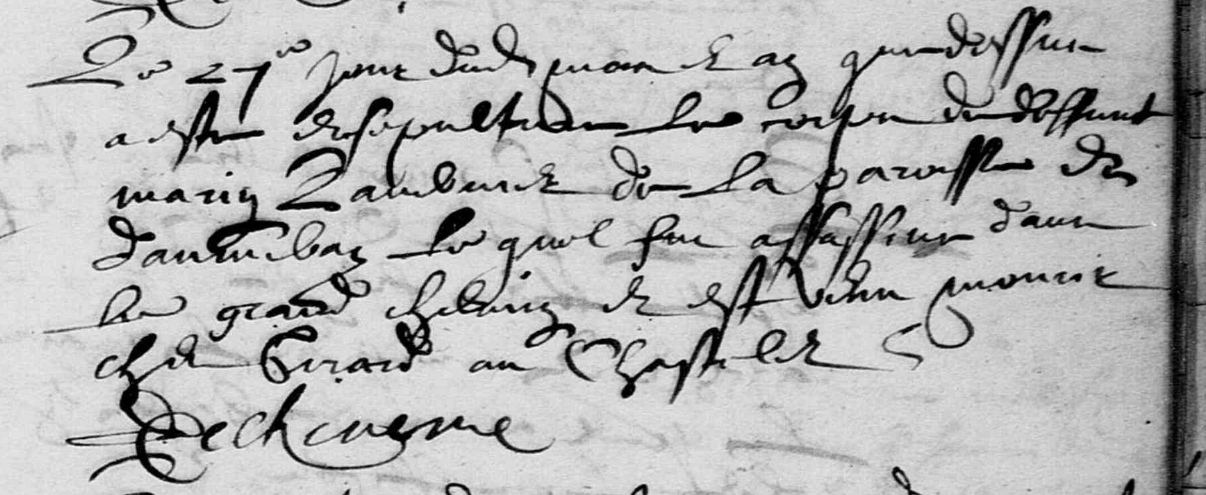 Le 27e jour dud mois et an que dessus
a esté ensepulturé le corps du deffunt
marin Lambert de la paroisse de
le quel fut assassiné dans
le grand chemin et est venu mourir
chez Girard au Chastelet